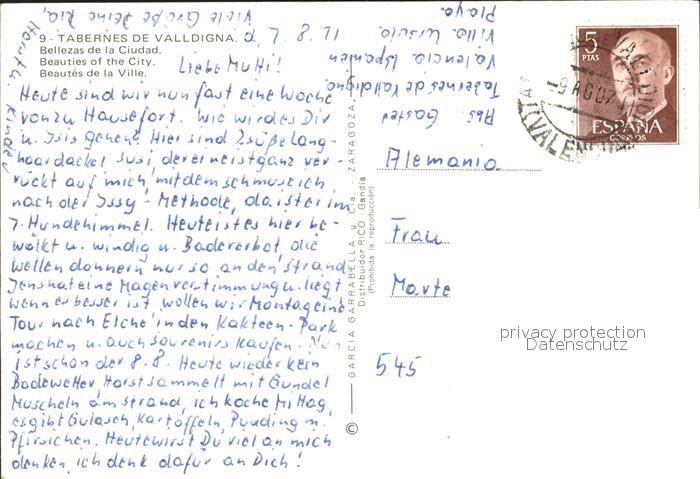 9 - TABERNES DE VALLDIGNA.
Bellezas de la Ciudad.
Beauties of the City.
Beautés de la Ville.
d, 7. 8. 71
Liebe Mutti!
Heute sind wir nun fast eine Woche
von zu Hause fort. Wie wird es Dir
u. Isis gehen? Hier sind 2 süße Lang-
haardackel Susi der eine ist ganz ver-
rückt auf mich, mit dem schmuse ich
nach der Issy-Methode, da ist er im
7. Hundehimmel. Heute ist es hier be-
wölkt u. windig u. Badeverbot, die
Wellen donnern nur so an den Strand
Jens hat eine Magenverstimmung u. liegt
wenn es besser ist wollen wir Montag eine
Tour nach Elche in den Kakteen-Park
machen u. auch Souvenirs kaufen. Nun
ist schon der 8.8. Heute wieder kein
Badewetter Horst sammelt mit Gundel
Muscheln am Strand, ich koche Mittag,
es gibt Gulasch, Kartoffeln, Pudding m.
Pfirsichen. Heute wirst Du viel an mich
denken, ich denk dafür an Dich!
Viele Grüße Deine Ria,
Horst u. Kinder
Abs. Gaster
Tabernes de Valldigna
Valencia Spanien
Villa Ursula
Playa.
© — GARCIA GARRABELLA y Cía. - ZARAGOZA.
Distribuidor RICO Gandía
(Prohibida la reproducción)
5
PTAS
ESPAÑA
CORREOS
Alemania
Frau
Marte
545
privacy protection
Datenschutz